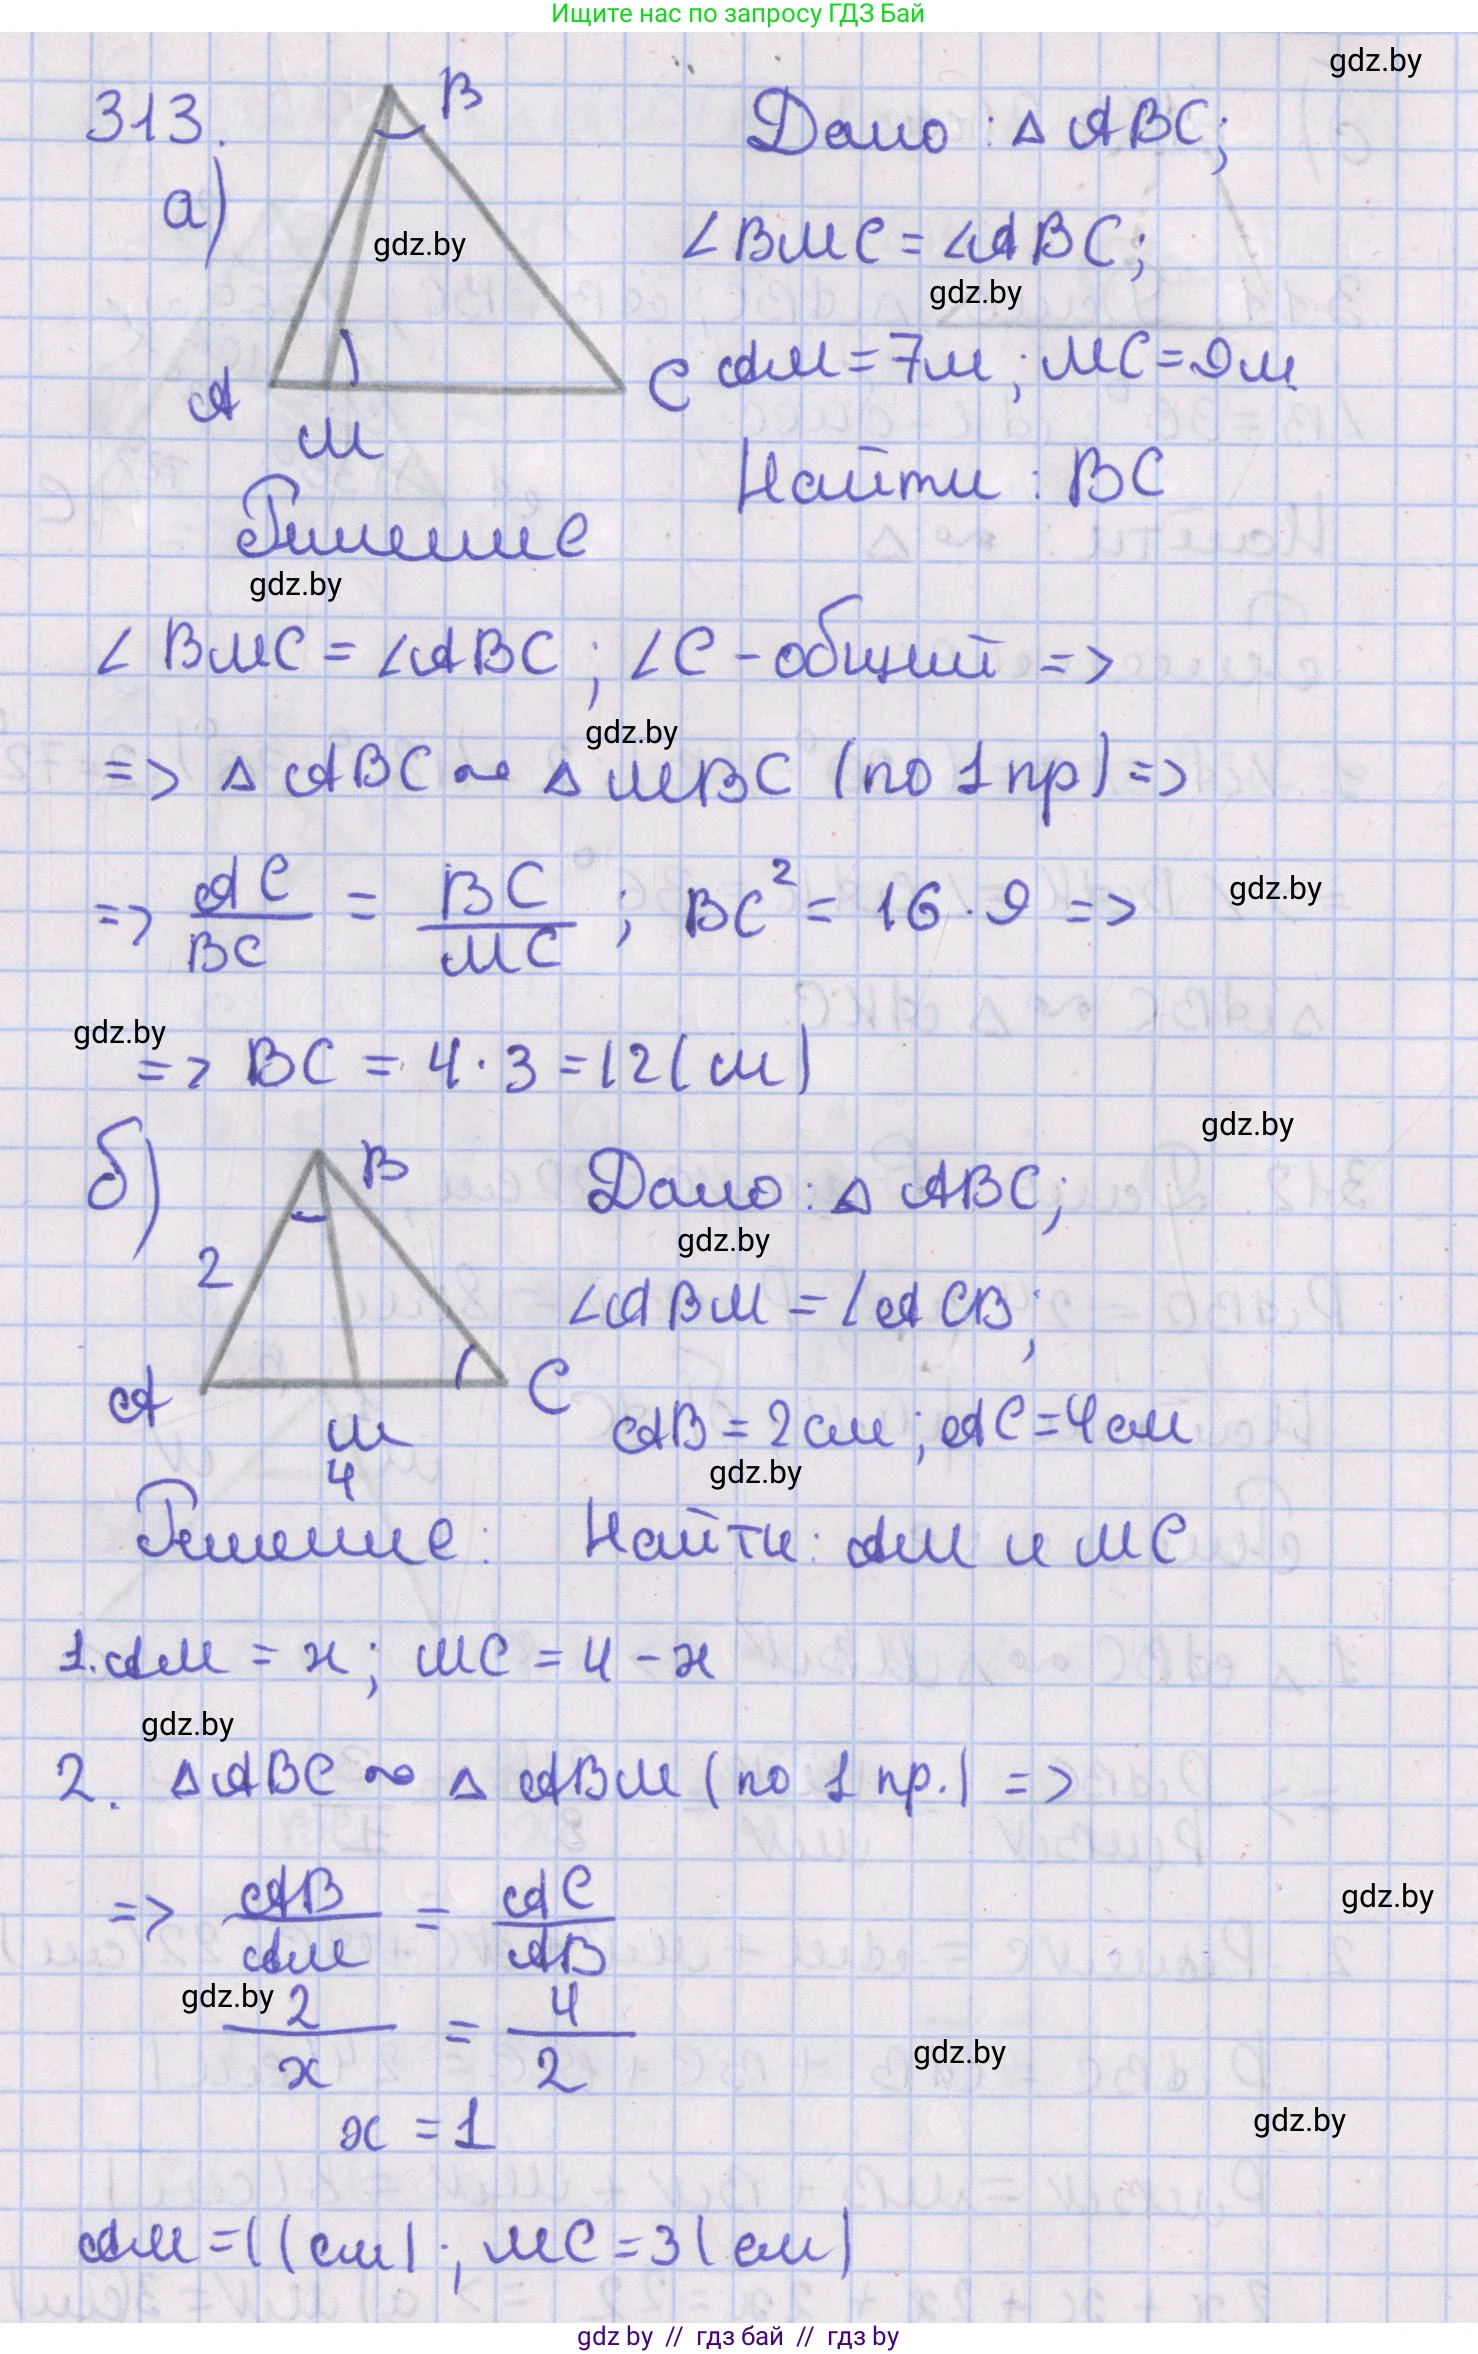 Ищите нас по запросу ГДЗ Бай
gdz.by
313.
а)
B
gdz.by
A
M
C
Дано : Δ ABC;
∠BMC = ∠ABC;
gdz.by
AM = 7м ; MC = 9м
Найти : BC
Решение
gdz.by
∠ BMC = ∠ABC ; ∠C - общий =>
gdz.by
=> Δ ABC ~ Δ MBC (по 1 пр) =>
=> AC/BC = BC/MC ; BC² = 16 · 9 =>
gdz.by
gdz.by
=> BC = 4 · 3 = 12 (м)
gdz.by
б)
B
2
A
M
4
C
Дано : Δ ABC;
gdz.by
∠ABM = ∠ACB;
AB = 2см ; AC = 4см
gdz.by
Решение : Найти : AM и MC
1. AM = x ; MC = 4 - x
gdz.by
2. Δ ABC ~ Δ ABM (по 1 пр.) =>
=> AB/AM = AC/AB
gdz.by
gdz.by
2/x = 4/2
gdz.by
x = 1
gdz.by
AM = 1 (см) ; MC = 3 (см)
gdz by // гдз бай // гдз by